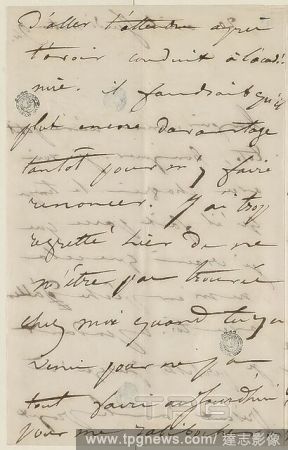 D'aller t'attendre après
t'avoir conduit à l'acadé
mie. il faudrait qu'il
plut encore davantage
tantôt pour m'y faire
renoncer. J'ai trop
regretté hier de ne
m'être pas trouvée
chez moi quand tu y es
venu pour ne pas
tout faire aujourd'hui
pour me
TPG
www.tpgnews.com / 達志影像